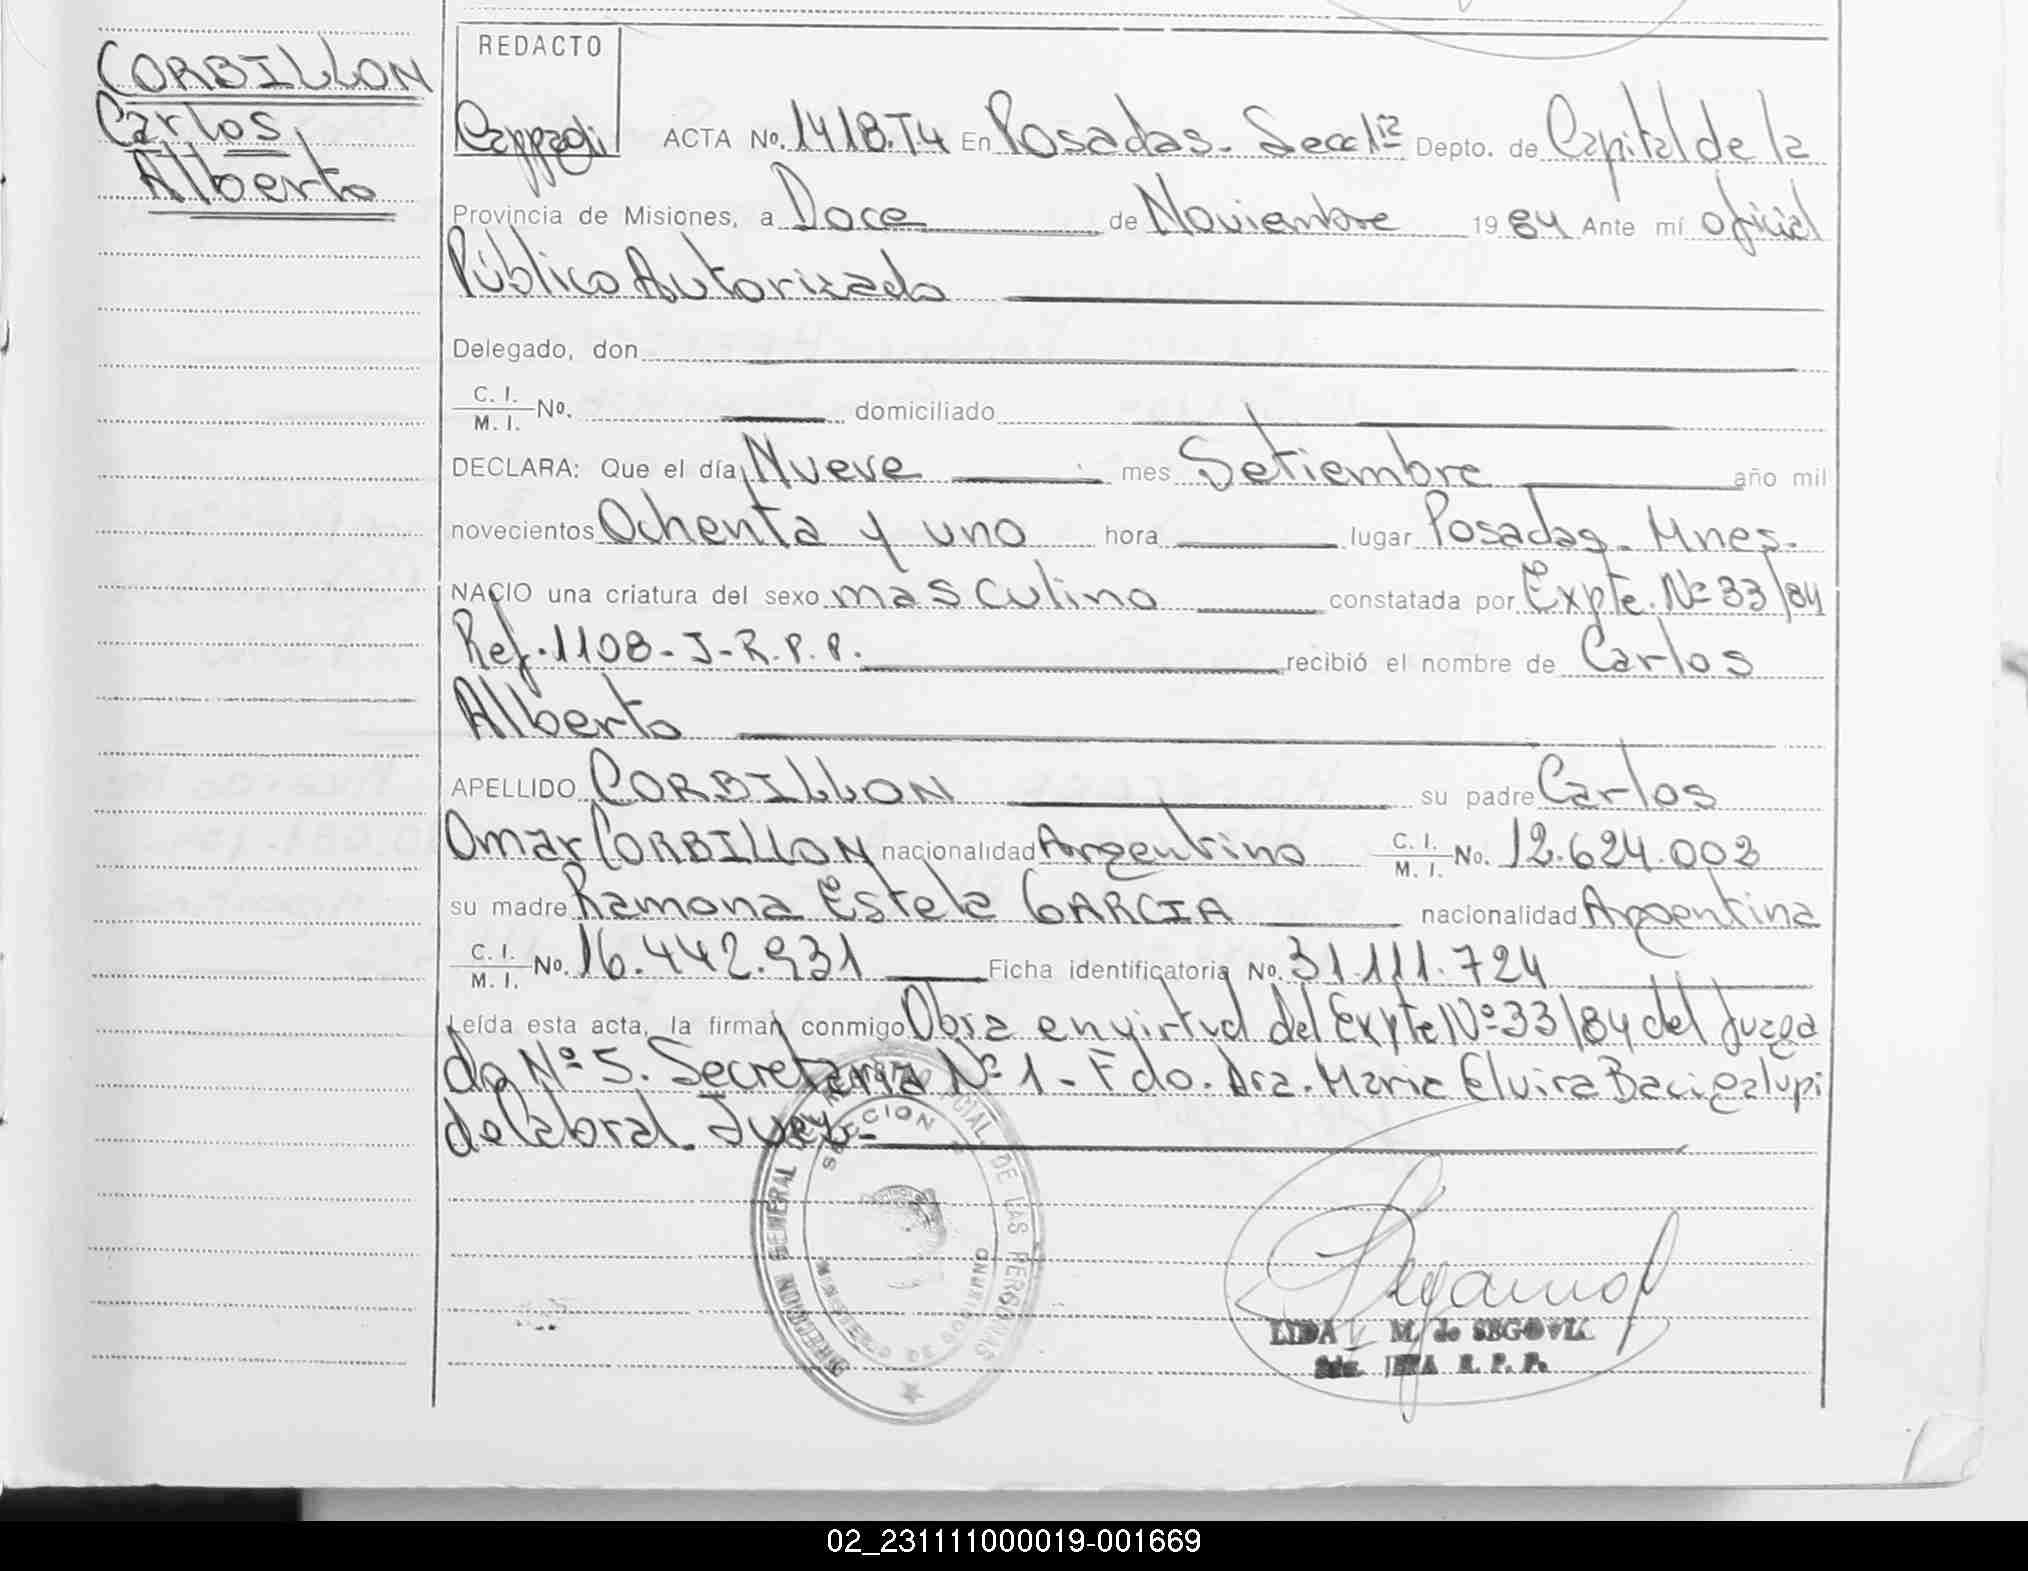 CORBILLON
Carlos
Alberto
REDACTO
ACTA No. 1418.T4 En Posadas. Secc 1ª Depto. de Capital de la
Provincia de Misiones, a Doce de Noviembre 1984 Ante mí oficial
Público Autorizado
Delegado, don
C. I.
M. I. No. domiciliado
DECLARA: Que el día Nueve mes Setiembre año mil
novecientos Ochenta y uno hora lugar Posadas. Mnes.
NACIO una criatura del sexo masculino constatada por Expte. Nº 33/84
Ref. 1108-J-R.P.P. recibió el nombre de Carlos
Alberto
APELLIDO CORBILLON su padre Carlos
Omar CORBILLON nacionalidad Argentino C. I. M. I. No. 12.624.002
su madre Ramona Estela GARCIA nacionalidad Argentina
C. I. M. I. No. 16.442.931 Ficha identificatoria No. 31.111.724
Leída esta acta, la firman conmigo Obra en virtud del Expte Nº 33/84 del Juzga
do Nº 5. Secretaria Nº 1 - Fdo. Dra. Maria Elvira Bacigalupi
de Cabral. Juez-
DIRECCION GENERAL DE LAS PERSONAS
SECCION
LIDA M. de SEGOVIA
JEFA R. P. P.
02_231111000019-001669